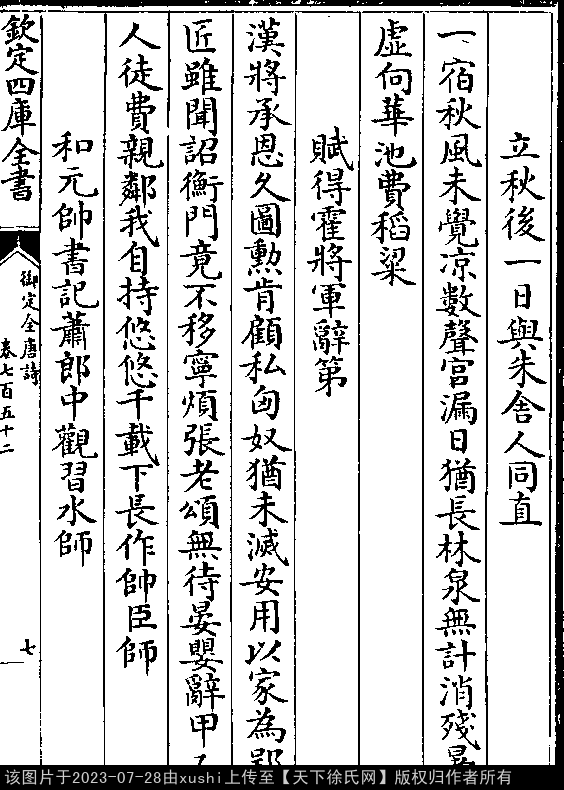 立秋後一日與朱舍人同直
一宿秋風未覺凉數聲宫漏日猶長林泉無計消殘
虛向華池費稻粱
賦得霍將軍辭第
漢將承恩久圖勲肯顧私匈奴猶未滅安用以家為
匠雖聞詔衡門竟不移寧煩張老頌無待晏嬰辭甲
人徒費親鄰我自持悠悠千載下長作帥臣師
和元帥書記蕭郎中觀習水師
欽定四庫全書
御定全唐詩
卷七百五十二
七
该图片于2023-07-28由xushi上传至【天下徐氏网】版权归作者所有